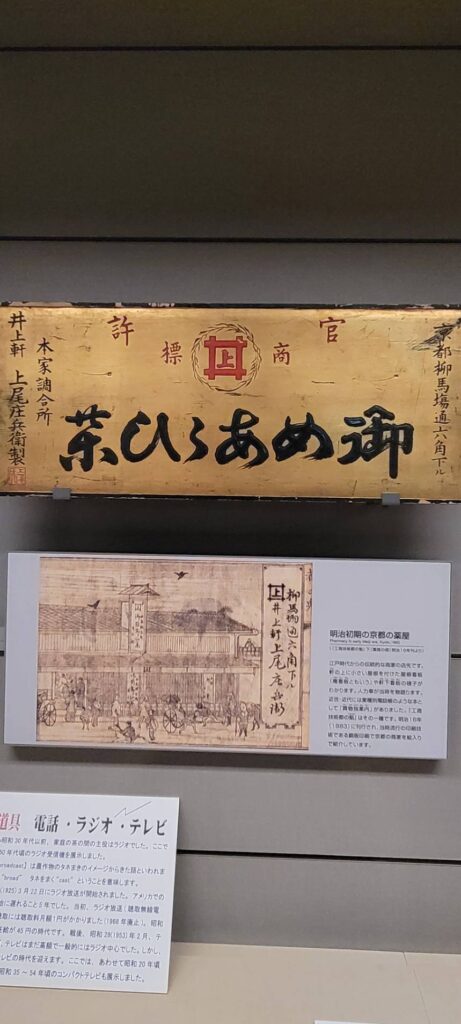 官許
商標
上
京都柳馬場通六角下ル
御めあらひ薬
本家調合所
井上軒 上尾庄兵衛製
柳馬場通六角下ル
上
井上軒上尾庄兵衛
明治初期の京都の薬屋
江戸時代からの伝統的な商家の店先です。
軒の上に小さい屋根を付けた屋根看板
(庵看板ともいう)や軒下看板の様子が
わかります。人力車が当時を物語ります。
近世・近代には業種別電話帳のような本と
して「買物独案内」がありました。『工商
技術都の魁』はその一種です。明治16年
(1883)に刊行され、当時流行の印刷技
術である銅版印刷で京都の商家を絵入り
で紹介しています。
道具 電話・ラジオ・テレビ
昭和30年代以前、家庭の茶の間の主役はラジオでした。ここで
50年代頃のラジオ受信機を展示しました。
broadcast】は農作物のタネまきのイメージからきた語といわれま
"broad" タネをまく"cast"ということを意味します。
(1925)3月22日にラジオ放送が開始されました。アメリカでの
に遅れること5年でした。当初、ラジオ放送(聴取無線電
取には聴取料月額1円がかかりました(1968年廃止)。昭和
給が45円の時代です。戦後、昭和28(1953)年2月、テ
、テレビはまだ高額で一般的にはラジオ中心でした。しかし、
レビの時代を迎えます。ここでは、あわせて昭和20年頃
昭和35～54年頃のコンパクトテレビも展示しました。